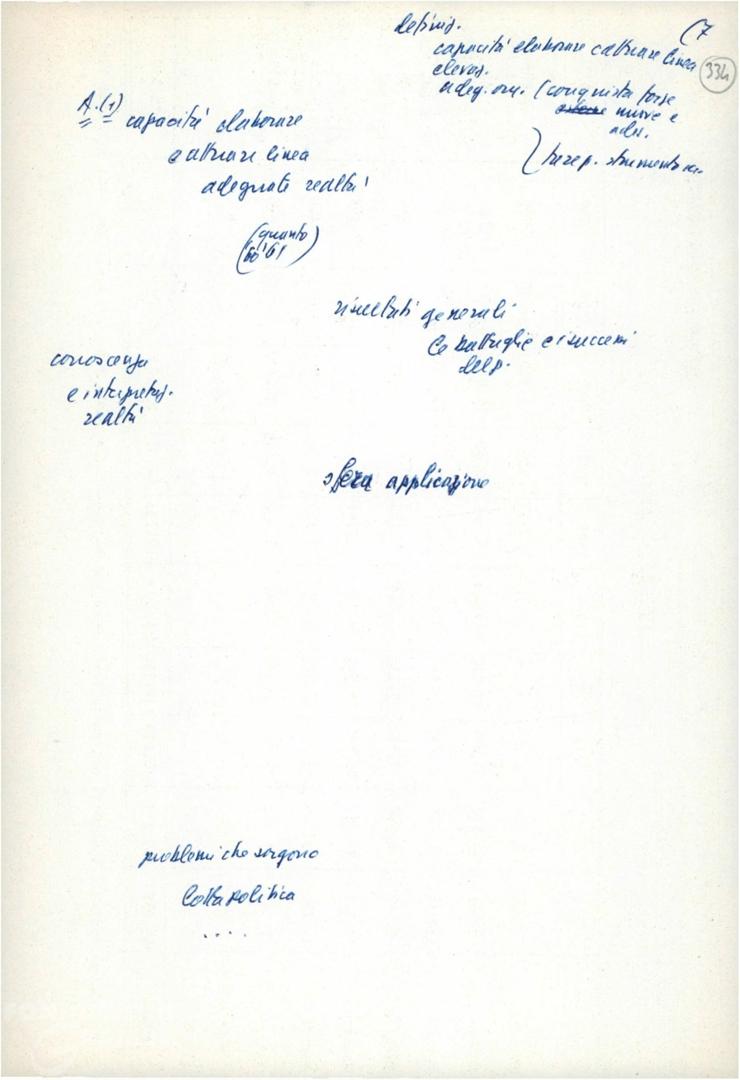 (7
334
definiz.
capacità elaborare e attuare linea
elevaz.
adeg. org. (conquista forze
nuove e
ades.
fare p. strumento
A. (1)
capacità elaborare
e attuare linea
adeguate realtà
(quanto)
(60'61
risultati generali
le battaglie e i successi
del p.
conoscenza
e interpretaz.
realtà
sfera applicazione
problemi che sorgono
lotta politica
....